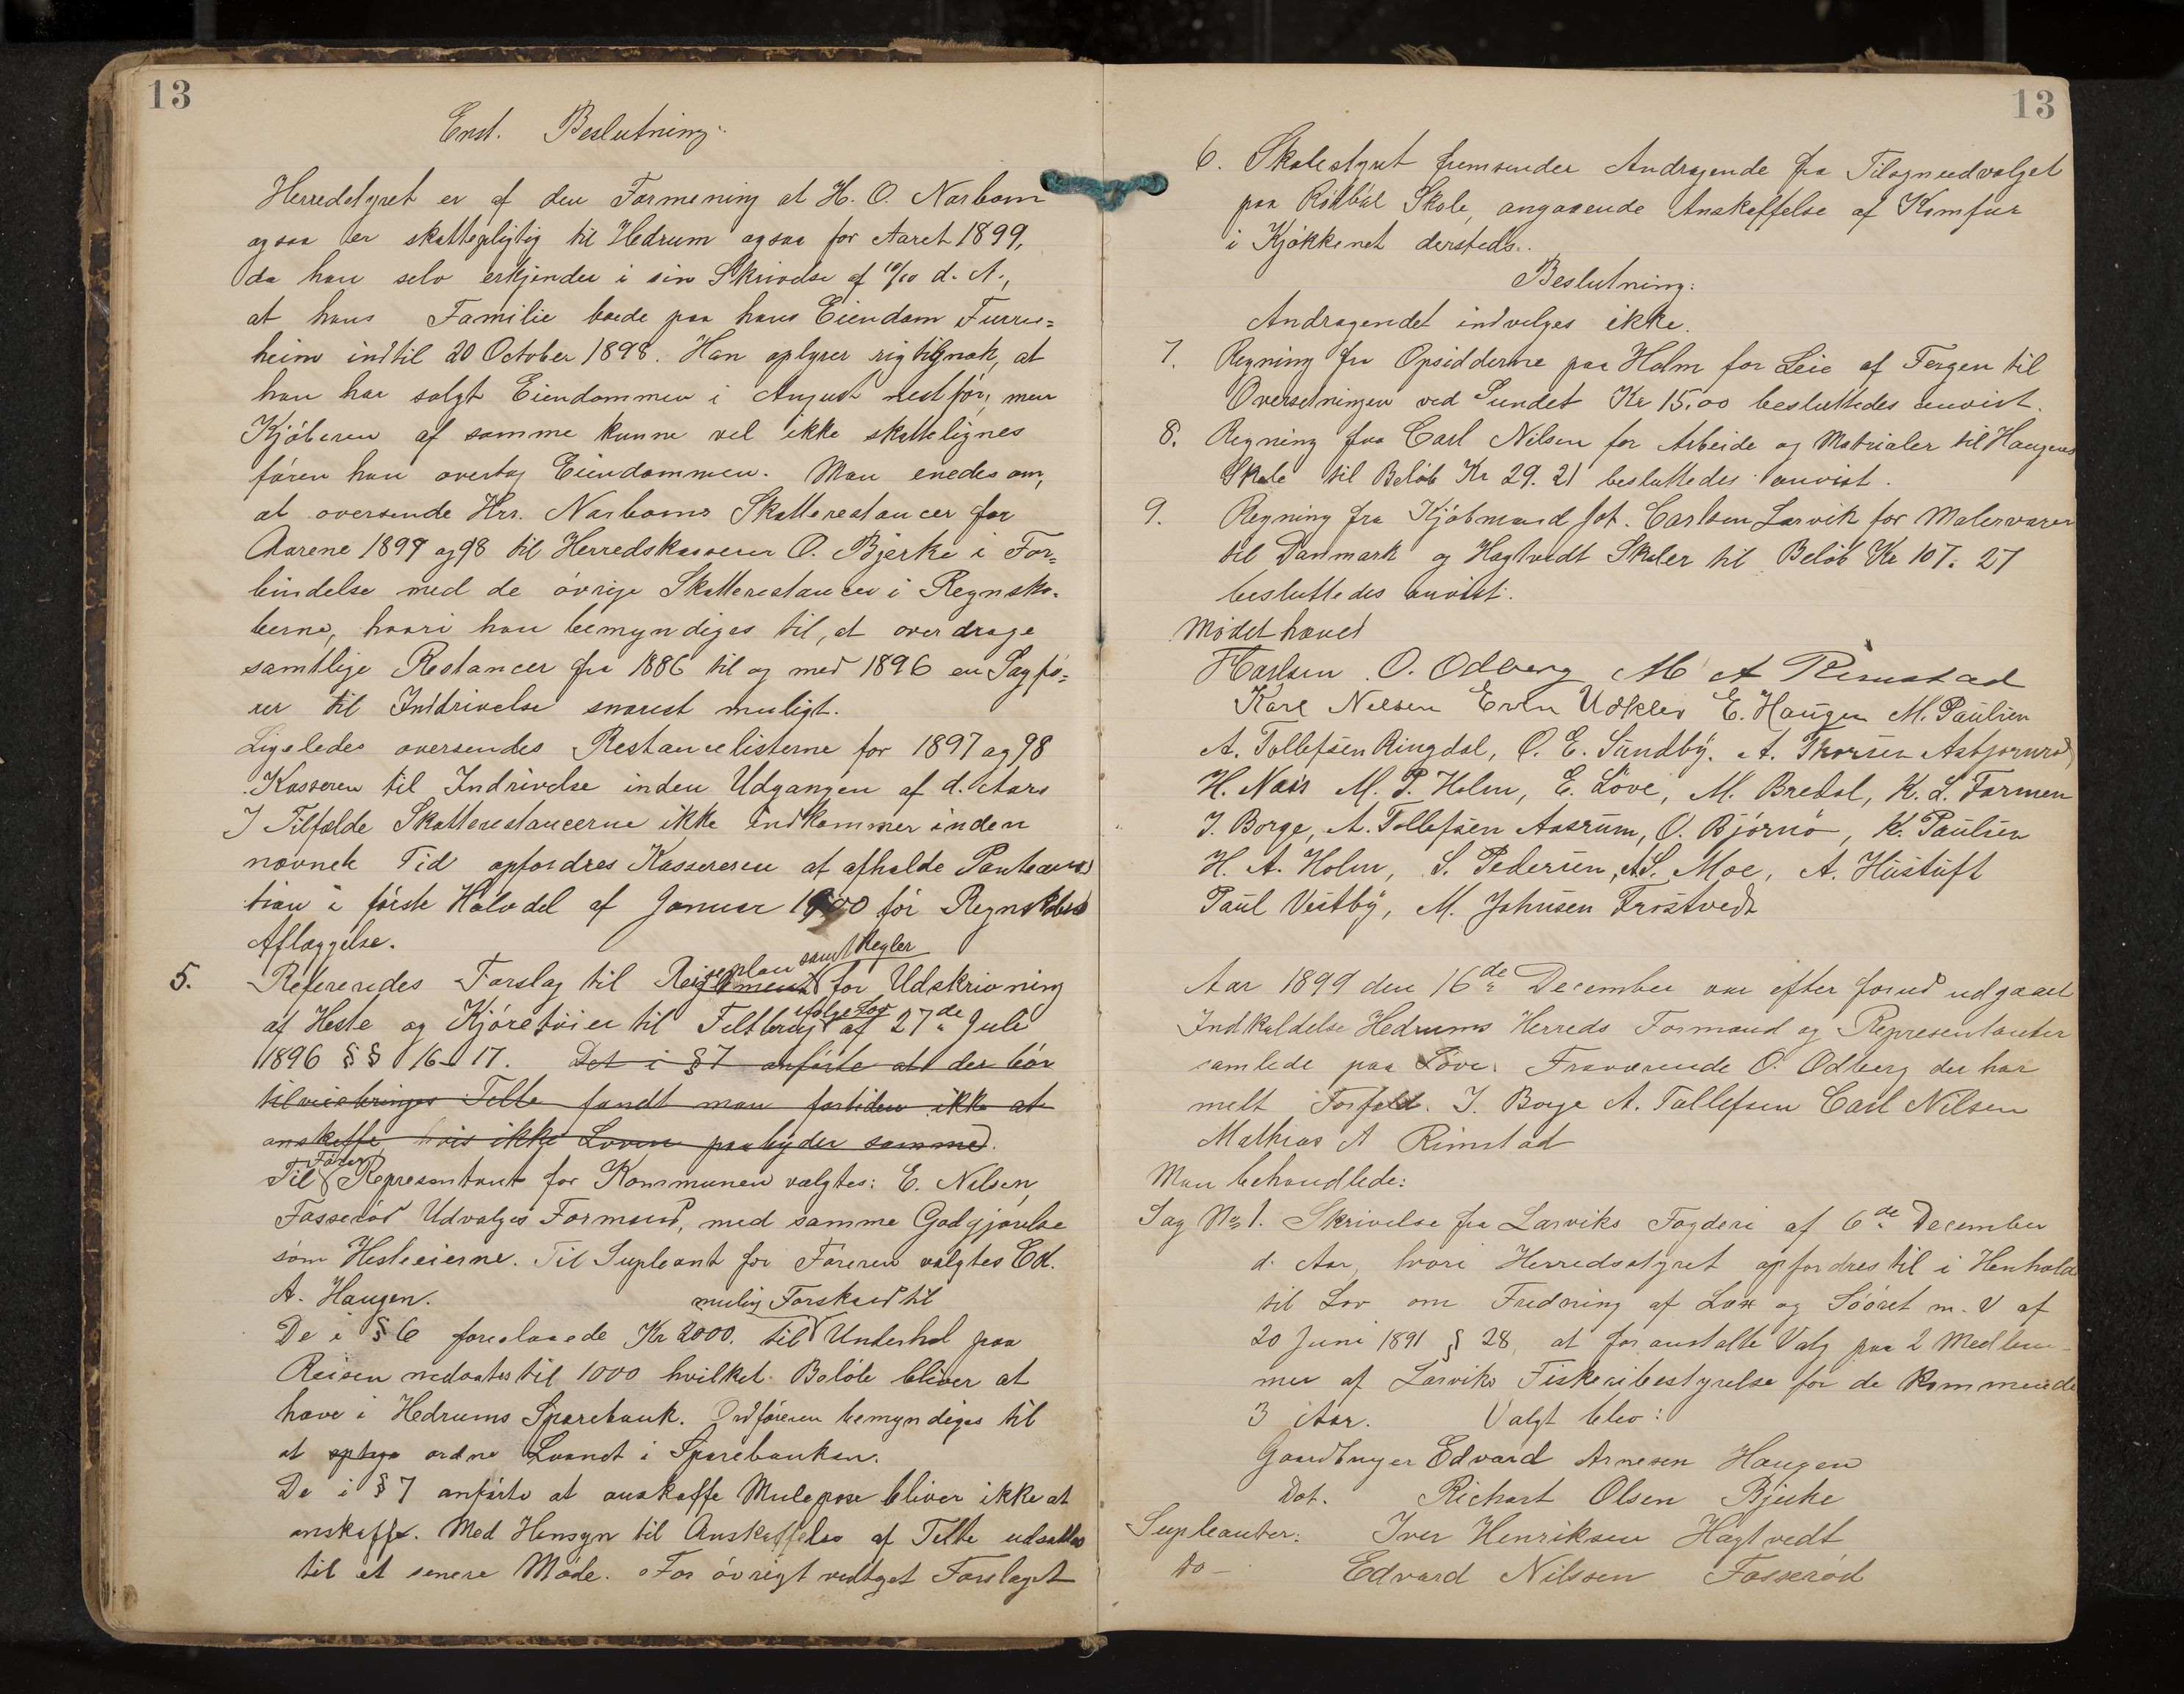 13
Enst. Beslutning:
Herredstyret er af den Formening at H. O. Narbom
ogsaa er skattepligtig til Hedrum ogsaa for Aaret 1899,
da han selv erkjender i sin Skrivelse af 10/10 d. A.,
at hans Familie boede paa hans Eiendom Furru=
heim indtil 20 October 1898. Han oplyser rigtignok, at
han har solgt Eiendommen i August næstfør, men
Kjøberen af samme kunne vel ikke skattelignes
føren han overtog Eiendommen. Man enedes om,
at oversende Hrr. Narboms Skatterestancer for
Aarene 1897 og 98 til Herredskasserer O. Bjerke i For=
bindelse med de øvrige Skatterestancer i Regnska=
berne, hvori han bemyndiges til, at overdrage
samtlige Restancer fra 1886 til og med 1896 en Sagfø=
rer til Inddrivelse snarest muligt.
Ligeledes oversendes Restancelisterne for 1897 og 98
Kasseren til Indrivelse inden Udgangen af d. Aars
I Tilfælde Skatterestancerne ikke indkommer inden
nævnte Tid opfordres Kassereren at afholde Panteauk
tion i første Halvdel af Januar 1900 før Regnskabets
Aflæggelse.
5. Refereredes Forslag til Reiseplan samt Regler for Udskrivning
af Heste og Kjøretøier til Feltbrug ifølge Lov af 27de Juli
1896 §§ 16-17. Det i §7 anførte at der bør
tilveiebringes Telte fandt man fortiden ikke at
anskaffe, hvis ikke Loven paabyder samme.
Til Fører Representant for Kommunen valgtes: E. Nilsen,
Fosserød Udvalgets Formand, med samme Godtgjørelse
som Hesteeierne. Til Supleant for Føreren valgtes Ed.
A. Haugen.
De i §6 foreslaaede Kr 2000. til mulig Forskud til Underhol paa
Reisen nedsattes til 1000 hvilket Beløb bliver at
hæve i Hedrums Sparebank. Ordføreren bemyndiges til
at optage ordne Laanet i Sparebanken.
De i §7 anførte at anskaffe Mulepose bliver ikke at
anskaffe. Med Hensyn til Anskaffelse af Telte udsattes
til et senere Møde. For øvrigt vedtaget Forslaget
13
6. Skolestyret fremsender Andragende fra Tilsynsudvalget
paa Rødbøl Skole, angaaende Anskaffelse af Komfur
i Kjøkkenet dersteds.
Beslutning:
Andragendet indvilges ikke.
7. Regning fra Opsidderne paa Holm for Leie af Fergen til
Oversetningen ved Sundet Kr 15.00 besluttedes anvist.
8. Regning fra Carl Nilsen for Arbeide og Matrialer til Haugens
Skole til Beløb Kr 29.21 besluttedes anvist.
9. Regning fra Kjøbmand Joh. Carlsen Larvik for Malervarer
til Danmark og Hagtvedt Skoler til Beløb Kr 107.27
besluttedes anvist.
Mødet hævet
Harlsen O. Odberg M A Rimstad
Karl Nilsen Even Udklev E. Haugen M. Paulsen
A. Tollefsen Ringdal, O. E. Sundby. A. Thorsen Asbjørnrød
H. Næs M. P. Holm, E. Løve, M. Bredal, K. L. Farmen
J. Borge, A. Tollefsen Aasrum, O. Bjørnø, K. Paulsen
H. A. Holm, S. Pedersen, A.S. Moe, A. Hustuft
Paul Vestby, M. Johnsen Trostvedt
Aar 1899 den 16de December var efter forud udgaaet
Indkaldelse Hedrums Herreds Formænd og Representanter
samlede paa Løve. Fraværende O. Odberg der har
melt Forfald. J. Borge A. Tollefsen Carl Nilsen
Mathias A Rimstad
Man behandlede:
Sag No 1. Skrivelse fra Larviks Fogderi af 6de December
d. Aar, hvori Herredsstyret opfordres til i Henhold
til Lov om Fredning af Lax og Søøret m. V af
20 Juni 1891 § 28, at foranstalte Valg paa 2 Medlem-
mer af Larviks Fiskeribestyrelse for de kommende
3 Aar. Valgt blev:
Gaardbruger Edvard Arnesen Haugen
Dot. Richart Olsen Bjerke
Supleanter: Iver Henriksen Hagtvedt
do - Edvard Nilssen Fosserød